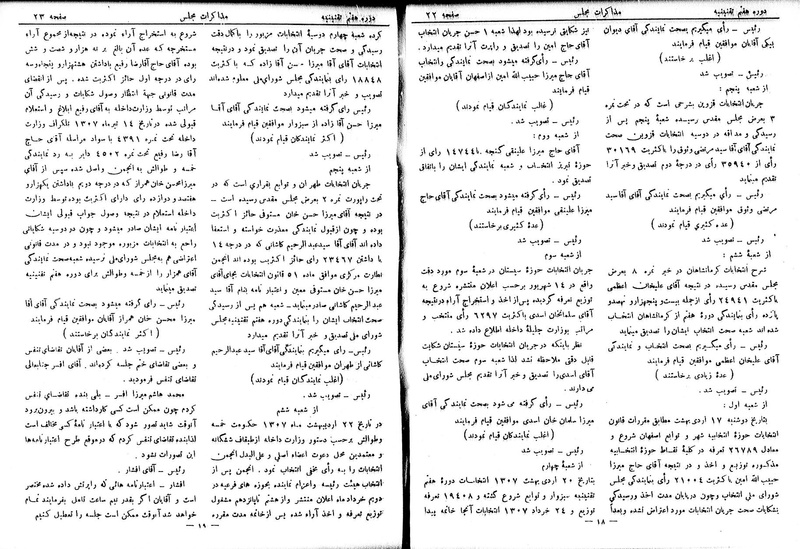 دوره هفتم تقنینیه مذاکرات مجلس صفحه ۲۲
رئیس - رأی میگیریم بصحت نمایندگی آقای دیوان
بیکی آقایان موافقین قیام فرمایند
(اغلب برخاستند)
رئیس - تصویب شد
از شعبه پنجم :
جریان انتخابات قزوین بشرحی است که در تحت نمره
۳ بعرض مجلس مقدس رسیده شعبه پنجم پس از
رسیدگی و مداقه در دوسیه انتخابات قزوین صحت
نمایندگی آقای آقا سید مرتضی وثوق را باکثریت ۳۰۱۶۹
رأی از ۳۵۹۴۰ رأی در درجهٔ دوم تصدیق و خبر آنرا
تقدیم مینماید
رئیس - رأی میگیریم بصحت نمایندگی آقای آقا سید
مرتضی وثوق موافقین قیام فرمایند
(عده کثیری قیام نمودند)
رئیس - تصویب شد
از شعبه ششم :
شرح انتخابات کرمانشاهان در خبر نمره ۸ بعرض
مجلس مقدس رسیده در نتیجه آقای علیخان اعظمی
باکثریت ۲۴۹۴۱ رأی از جمله بیست و پنجهزار و نهصدو
پانزده رأی بنمایندگی دورهٔ هفتم از کرمانشاهان انتخاب
شده اند شعبه صحت انتخاب ایشان را تصدیق مینماید
رئیس - رأی میگیریم بصحت انتخاب و نمایندگی
آقای علیخان اعظمی موافقین قیام فرمایند
(عدهٔ زیادی برخاستند)
رئیس - تصویب شد.
از شعبه اول :
بتاریخ دوشنبه ۱۷ اردی بهشت مطابق مقررات قانون
انتخابات حوزهٔ انتخابیه شهر و توابع اصفهان شروع و
معادل ۲۶۷۸۹ تعرفه در کلیهٔ نقاط حوزهٔ انتخابیه
مذکوره توزیع و اخذ و در نتیجه آقای حاج میرزا
حبیب الله امین باکثریت ۲۱۰۰۴ رأی بنمایندگی مجلس
شورای ملی انتخاب و چون در پایان مدت اخذ و رسیدگی
بشکایات صحت جریان انتخابات مورد اعتراض نشده و بعداً
نیز شکایتی نرسیده بود لهذا شعبه ۱ حسن جریان انتخاب
آقای حاج امین را تصدیق و راپرت آنرا تقدیم میدارد .
رئیس - رأی گرفته میشود بصحت نمایندگی و انتخاب
آقای حاج میرزا حبیب الله امین از اصفهان آقایان موافقین
قیام فرمایند
(اغلب نمایندگان قیام نمودند)
رئیس - تصویب شد
از شعبه دوم :
آقای حاج میرزا علینقی گنجه باکثریت ۱۴۷۴۴ رأی از
حوزهٔ تبریز انتخاب و شعبه نمایندگی ایشان را باتفاق
تصدیق نمود .
رئیس - رأی گرفته میشود بصحت نمایندگی آقای حاج
میرزا علینقی موافقین قیام فرمایند
(عدهٔ کثیری برخاستند)
رئیس - تصویب شد
از شعبه سوم
جریان انتخابات حوزهٔ سیستان در شعبهٔ سوم مورد دقت
واقع در ۱۴ شهریور برحسب اعلان منتشره شروع به
توزیع تعرفه گردیده پس از اخذ و استخراج آراء در نتیجه
آقای سلمانخان اسدی باکثریت ۶۲۹۷ رأی منتخب و
مراتب بوزارت جلیلهٔ داخله اطلاع داده شد .
نظر باینکه در جریان انتخابات حوزهٔ سیستان شکایت
قابل دقتی ملاحظه نشد لذا شعبه سوم صحت انتخاب
آقای اسدی را تصدیق و خبر آنرا تقدیم مجلس شورای ملی
میدارند .
رئیس - رأی گرفته می شود بصحت نمایندگی آقای
میرزا سلمان خان اسدی موافقین قیام فرمایند
(اغلب نمایندگان قیام نمودند)
رئیس - تصویب شد
از شعبه چهارم
بتاریخ ۲۰ اردی بهشت ۱۳۰۷ انتخابات دورهٔ هفتم
تقنینیه سبزوار و توابع شروع گشته و ۱۹۴۰۸ تعرفه
توزیع و ۲۴ خرداد ۱۳۰۷ انتخابات آنجا خاتمه پیدا
— ۱۸ —
دوره هفتم تقنینیه مذاکرات مجلس صفحه ۲۳
کرده شعبه چهارم دوسیهٔ انتخابات مزبور را باکمال دقت
رسیدگی و صحت جریان آن را تصدیق نمود و در نتیجه
انتخابات آقای آقا میرزا حسن آقا زاده که باکثریت
۱۸۸۴۸ رأی بنمایندگی مجلس شورای ملی معلوم شده‌اند
تصویب و خبر آنرا تقدیم میدارد
رئیس رأی گرفته میشود بصحت نمایندگی آقای آقا
میرزا حسن آقا زاده از سبزوار موافقین قیام فرمایند
(اکثر نمایندگان قیام نمودند)
رئیس - تصویب شد
از شعبه پنجم
جریان انتخابات طهران و توابع بقراری است که در
تحت راپورت نمره ۲ بعرض مجلس مقدس رسیده است -
در نتیجه آقای میرزا حسن خان مستوفی حائز اکثریت
بوده و چون از قبول نمایندگی معذرت خواسته و استعفا
داده اند آقای آقا سید عبدالرحیم کاشانی که در درجه ۱۴
با داشتن ۲۳۴۶۷ رأی حائز اکثریت بوده اند انجمن
نظارت مرکزی موافق ماده ۵۱ قانون انتخابات بجای آقای
میرزا حسن خان مستوفی معین و اعتبار نامه بنام آقا سید
عبدالرحیم کاشانی صادر مینماید - شعبه هم پس از رسیدگی
صحت انتخاب ایشان را بنمایندگی دوره هفتم تقنینیه مجلس
شورای ملی تصدیق و خبر آنرا تقدیم میدارد
رئیس - رأی میگیریم بنمایندگی آقای آقا سید عبدالرحیم
کاشانی از طهران موافقین قیام فرمایند
(اغلب نمایندگان قیام نمودند)
رئیس - تصویب شد .
از شعبه ششم
در تاریخ ۲۲ اردیبهشت ماه ۱۳۰۷ حکومت خمسه
و طوالش برحسب دستور وزارت داخله از طبقات ششگانه
و معتمدین محل دعوت اعضاء اصلی و علی البدل انجمن
انتخابات را به رأی مخفی انتخاب نمود. انجمن پس از
انتخاب هیئت رئیسه و اعزام نماینده بحوزه های فرعیه در
دویم خرداد ماه اعلان منتشر و از هشتم تا پانزدهم مشغول
توزیع تعرفه و اخذ آراء شده پس از خاتمه مدت مقرره
شروع به استخراج آراء نموده در نتیجه از مجموع آراء
مستخرجه که عده آن بالغ بر نه هزار و شصت و شش
بوده آقای حاج آقا رضا رفیع با داشتن هشتهزار و پنجاه و سه
رأی در درجه اول حائز اکثریت شده . پس از انقضای
مدت قانونی جهة انتظار وصول شکایات و رسیدگی آن
مراتب توسط وزارت داخله به آقای رفیع ابلاغ و استعلام
قبولی شده در تاریخ ۱۴ تیر ماه ۱۳۰۷ تلگراف وزارت
داخله تحت نمره ۴۳۹۱ با سواد مراسله آقای حاج
آقا رضا رفیع تحت نمره ۴۵۰۲ دایر به رد نمایندگی
خمسه و طوالش به انجمن واصل شده سپس از آقای
میرزا محسن خان همراز که در درجه دویم با داشتن یکهزار و
هفتصد و دوازده رأی دارای اکثریت بوده توسط وزارت
داخله استعلام در نتیجه وصول جواب قبولی ایشان
اعتبار نامه ایشان صادر میشود و چون در دوسیه شکایاتی
راجع به انتخابات مزبوره موجود نبود و در مدت قانونی
اعتراضی هم به مجلس شورای ملی نرسیده شعبه صحت نمایندگی
آقای همراز را از خمسه و طوالش برای دوره هفتم تقنینیه
تصدیق مینماید
رئیس - رأی گرفته میشود بصحت نمایندگی آقای آقا
میرزا محسن خان همراز آقایان موافقین قیام فرمایند
(اکثر نمایندگان برخاستند)
رئیس - تصویب شد . بعضی از آقایان تقاضای تنفس
و بعضی تقاضای ختم جلسه کرده‌اند . آقای افسر جنابعالی
تقاضای تنفس فرمودید .
محمد هاشم میرزا افسر - بلی بنده تقاضای تنفس
کردم چون ممکن است کسی کار داشته باشد و بیرون رود
آنوقت شاید تصور شود که با اعتبار نامهٔ کسی مخالف است
لذا بنده تقاضای تنفس کردم که در موقع طرح اعتبارنامه‌ها
این تصورات نشود .
رئیس - آقای افشار .
افشار - اعتبار نامه هائی که راپرتش داده شده مختصر
است و آقایان اگر بقدر نیم ساعت تأمل بفرمایند تمام
خواهد شد آنوقت ممکن است جلسه را تعطیل کنیم
— ۱۹ —